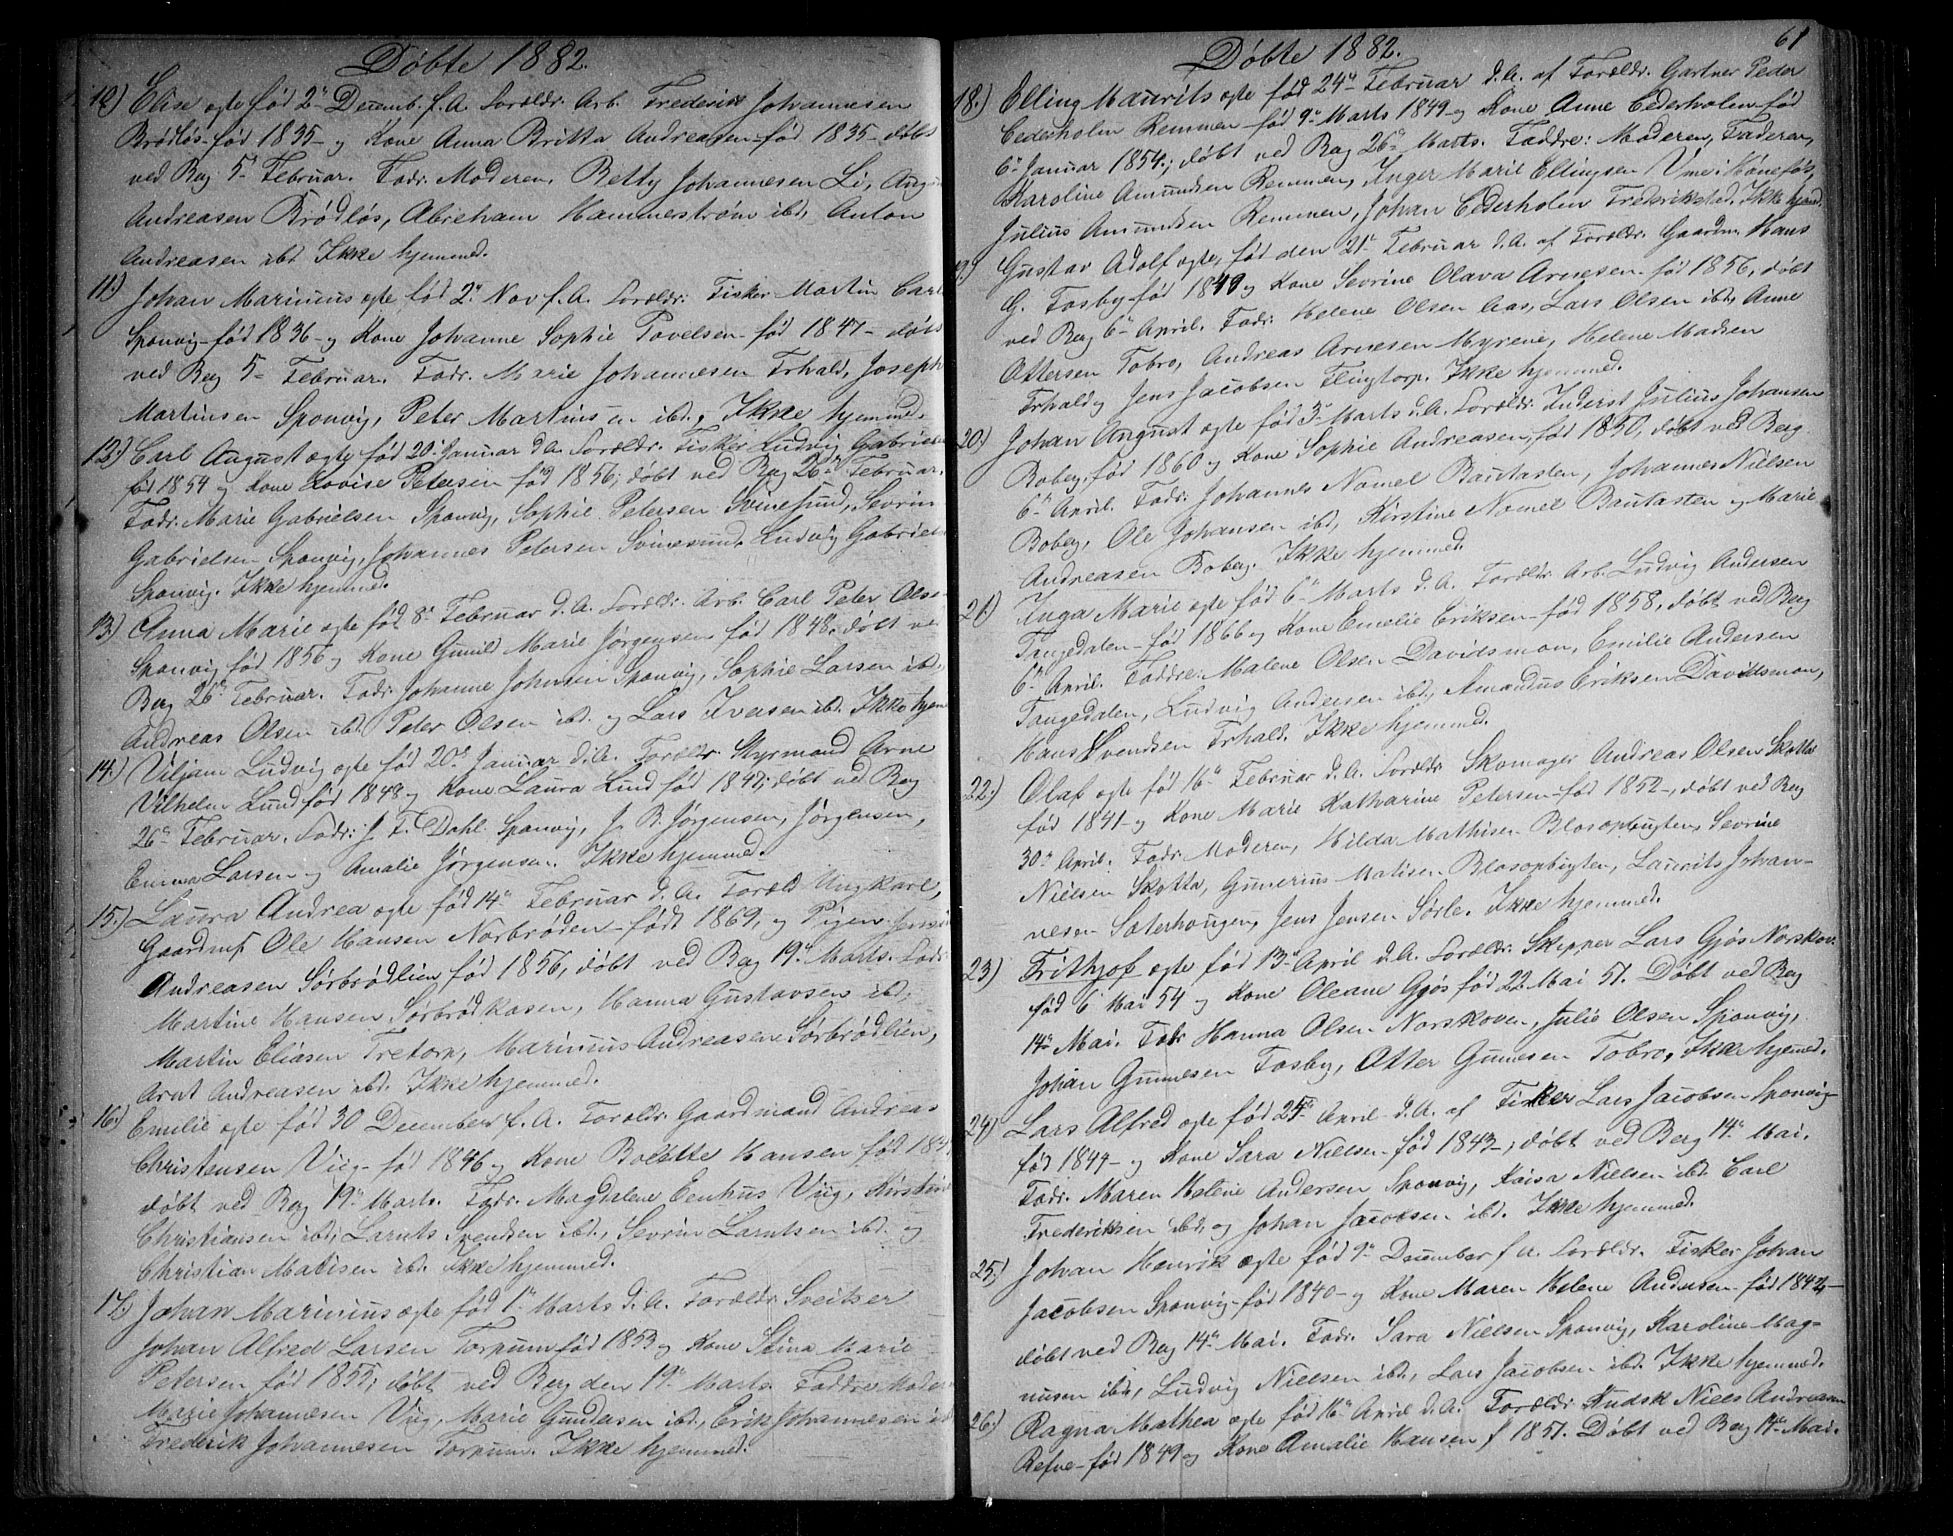 Døbte 1882.
10.) Elise egte født 2den Decemb. f. A. Foreldr. Arb. Frederik Johannesen
Brødløs født 1835 - og Kone Anna Britta Andreasen - født 1835 - døbt
ved Berg 5te Februar. Fadr. Moderen, Betty Johannesen Li, August
Andreasen Brødløs, Abreham Hammerstrøm ibd, Anton
Andreasen ibd. Ikke hjemmed.
11.) Johan Marinius egte født 2. Nov f. A. Foreldr: Fisker Martin Carls
Sponvig - født 1836 - og Kone Johanne Sophie Povelsen - født 1841 - døbt
ved Berg 5te Februar. Fadr. Marie Johannesen Erhald, Joseph
Martinsen Sponvig, Peter Martinsen ibd., Ikke hjemmed.
12.) Carl August egte født 20. Januar d. A. Foreldr. Fisker Ludvig Gabrielsen
født 1854 og Kone Lovise Petersen født 1856, døbt ved Berg 26de Februar.
Fadr. Marie Gabrielsen Sponvig, Sophie Petersen Svinesund, Sevrin
Gabrielsen Sponvig, Johannes Petersen Svinesund, Ludvig Gabrielsen
Sponvig. Ikke hjemmed.
13.) Anna Marie egte født 8. Februar d. A. Foreldr. Arb. Carl Peter Olsen
Sponvig født 1856 og Kone Gunild Marie Jørgensen født 1848, døbt ved
Berg 26de Februar. Fadr. Johanne Johnsen Sponvig, Sophie Larsen ibd.
Andreas Olsen ibd. Peter Olsen ibd. og Lars Iversen ibd. Ikke hjem
14.) Viljam Ludvig egte født 20de Januar d. A. Foreldr. Styrmand Arne
Vilhelm Lund født 1849 og Kone Laura Lind født 1847, døbt ved Berg
26de Februar. Fadr: J. F. Dahl Sponvig, J. B. Jørgensen, Jørgensen,
Emma Larsen og Amalie Jørgensen. Ikke hjemmed.
15.) Laura Andrea egte født 14de Februar d. A. Foreld Ungkarl,
Gaardmf. Ole Hansen Norbrøden - født 1869, og Pigen Jensine
Andreasen Sørbrødlien født 1856, døbt ved Berg 19de Marts. Fadr
Martine Hansen Sørbrødkasen, Hanna Gustavsen ibd,
Martin Eliasen Tretorp, Marinius Andreasen Sørbrødlien,
Arnt Andreasen ibd. Ikke hjemmed.
16.) Emilie egte født 30 December f. A. Foreldr: Gaardmand Andreas
Christensen Viig - født 1846 og Kone Bolette Hansen født 184
døbt ved Berg 19de Marts. Fadr. Magdalene Eenhus Viig, Kirstine
Christiansen ibd, Larnts Svendsen ibd., Sevrin Larntsen ibd. og
Christian Matisen ibd. Ikke hjemmed.
17.) Johan Marinius egte født 1ste Marts d. A. Foreldr. Sveitser
Johan Alfred Larsen Torpum født 1853 og Kone Stina Marie
Petersen født 1855, døbt ved Berg den 19de Marts. Faddre: Moder
Marie Johannesen Viig, Marie Gundersen ibd., Erik Johannesen ibd
Frederik Johannesen Torpum. Ikke hjemmed.
61
Døbte 1882.
18.) Elling Maurits egte født 24de Februar d. A. af Foreldr. Gartner Peder
Cederholm Remmen - født 9de Marts 1849 og Kone Anne Cederholm født
6te Januar 1854, døbt ved Berg 26de Marts. Faddre: Moderen, Faderen,
Karoline Amundsen Remmen, Inger Marie Ellingsen Vme i Hønefos,
Julius Amundsen Remmen, Johan Cederholm Fredrikshald. Ikke hjemd.
19.) Gustav Adolf egte, født den 21de Februar d. A. af Foreldr. Gaardm. Hans
G. Fosby - født 1849 og Kone Sevrine Olava Arnesen født 1856, døbt
ved Berg 6te April. Fadr: Helene Olsen Aas, Lars Olsen ibd, Anne
Ottersen Tobro, Andreas Arnesen Myrene, Helene Madsen
Erhald og Jens Jacobsen Flugtorp. Ikke hjemmed.
20.) Johan August egte født 3de Marts d. A. Foreldr. Inderst Julius Johansen
Boberg, født 1860 og Kone Sophie Andreasen, født 1850, døbt ved Berg
6te April. Fadr: Johannes Nomel Bautasten, Johannes Nielsen
Boberg, Ole Johansen ibd, Kirstine Nomel Bautasten og Marie
Andreasen Boberg. Ikke hjemmed.
21.) Inga Marie egte født 6te Marts d. A. Foreldr. Arb. Ludvig Andersen
Tangedalen - født 1866 og Kone Emelie Eriksen - født 1858, døbt ved Berg
6te April. Faddre: Malene Olsen Davidsmon, Emilie Andersen
Tangedalen, Ludvig Andersen ibd, Amandus Eriksen Davidsmon,
Hans Svendsen Erhald. Ikke hjemmed.
22.) Olaf egte født 16de Februar d. A. Foreldr. Skomager Andreas Olsen Skotta
født 1841 - og Kone Marie Katharine Petersen født 1852 -, døbt ved Berg
30te April. Fadr. Moderen, Hilda Mathisen Blosopbugten, Sevrine
Nielsen Skotta, Gunerius Matisen Blosopbugten, Laurits Johan-
nesen Saterhougen, Jens Jensen Sørle. Ikke hjemmed.
23.) Frithjof egte født 13de April d. A. Foreldr. Skipper Lars Gjøs Norskov.
født 6 Mai 54 og Kone Oleane Gjøs født 22 Mai 57. Døbt ved Berg
14de Mai. Fadr Hanna Olsen Norskoven, Julie Olsen Sponvig,
Johan Gunnesen Fosby, Otter Gunnesen Tobro. Ikke hjemed.
24.) Lars Alfred egte født 25de April d. A. af Fisker Lars Jacobsen Sponvig -
født 1844 - og Kone Sara Nielsen - født 1843 -, døbt ved Berg 14de Mai.
Fadr. Maren Helene Andersen Sponvig, Kaisa Nielsen ibd. Carl
Frederiksen ibd, og Johan Jacobsen ibd. Ikke hjemmed.
25.) Johan Henrik egte født 9de December f. A. Foreldr. Fisker Johan
Jacobsen Sponvig - født 1840 - og Kone Maren Helene Andersen - født 1842 -
døbt ved Berg 14de Mai. Fadr. Sara Nielsen Sponvig, Karoline Mag-
nusen ibd, Ludvig Nielsen ibd, Lars Jacobsen ibd. Ikke hjemmed.
26.) Ragna Mathea egte født 16de April d. A. Foreldr. Kudsk Niels Andreasen
Refne - født 1849 og Kone Amalie Hansen f 1851. Døbt ved Berg 14de Mai.